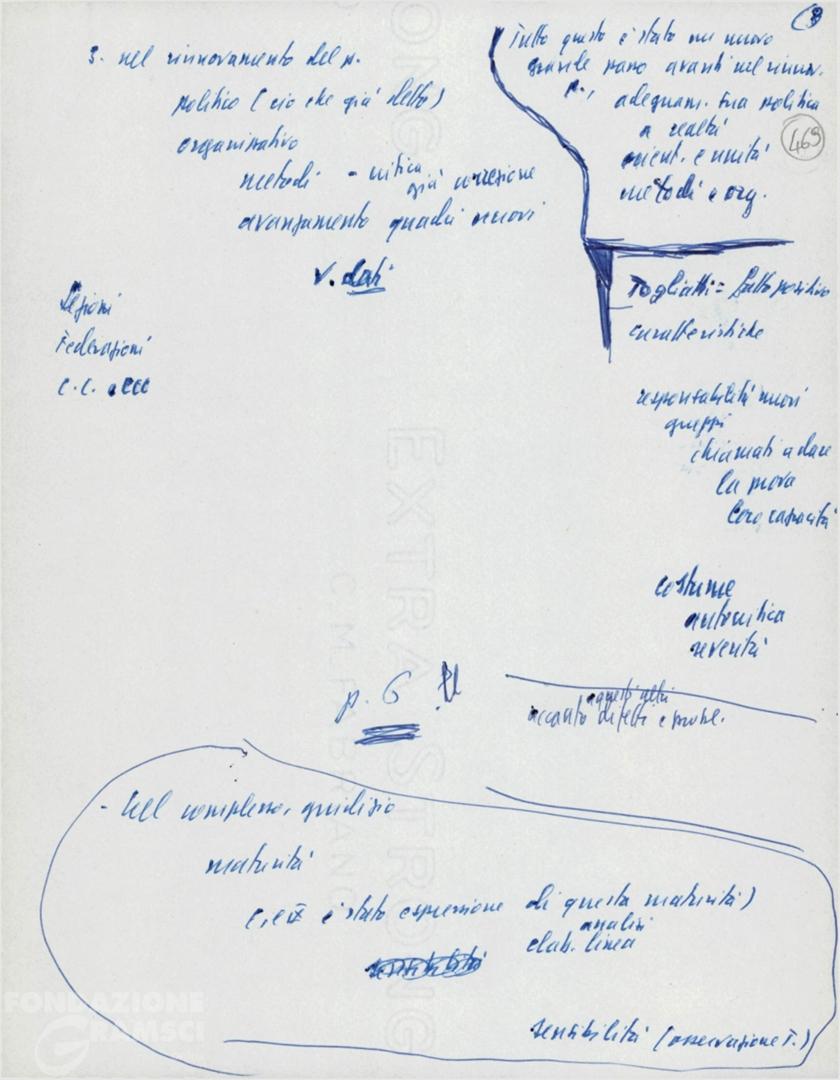 3. nel rinnovamento del p.
politico (ciò che già detto)
organizzativo
metodi - critica
già correzione
avanzamento quadri nuovi
V. dati
Sezioni
Federazioni
C.C. ecc
8
Tutto questo è stato un nuovo
grande passo avanti nel rinnov.
p.,
adeguam. sua politica
a realtà
orient. e unità
metodi e org.
469
Togliatti = fatto positivo
caratteristiche
responsabilità nuovi
gruppi
chiamati a dare
la prova
loro capacità
costume
autocritica
severità
p. 6
aspetti altri
accanto difetti e probl.
- Nel complesso, giudizio
maturità
è stato espressione di questa maturità)
analisi
elab. linea
sensibilità (osservazione T.)
EXTRA STRONG
C.M. FABRIANO
FONDAZIONE
GRAMSCI